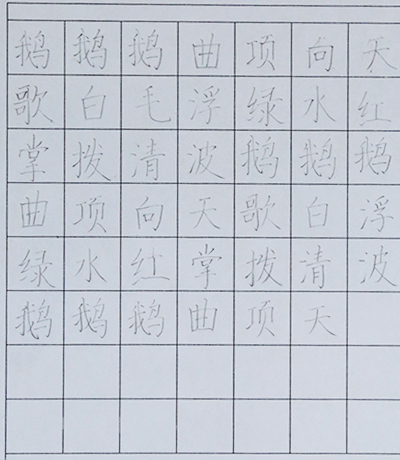 鹅鹅鹅曲项向天
歌白毛浮绿水红
掌拨清波鹅鹅鹅
曲项向天歌白浮
绿水红掌拨清波
鹅鹅鹅曲项天